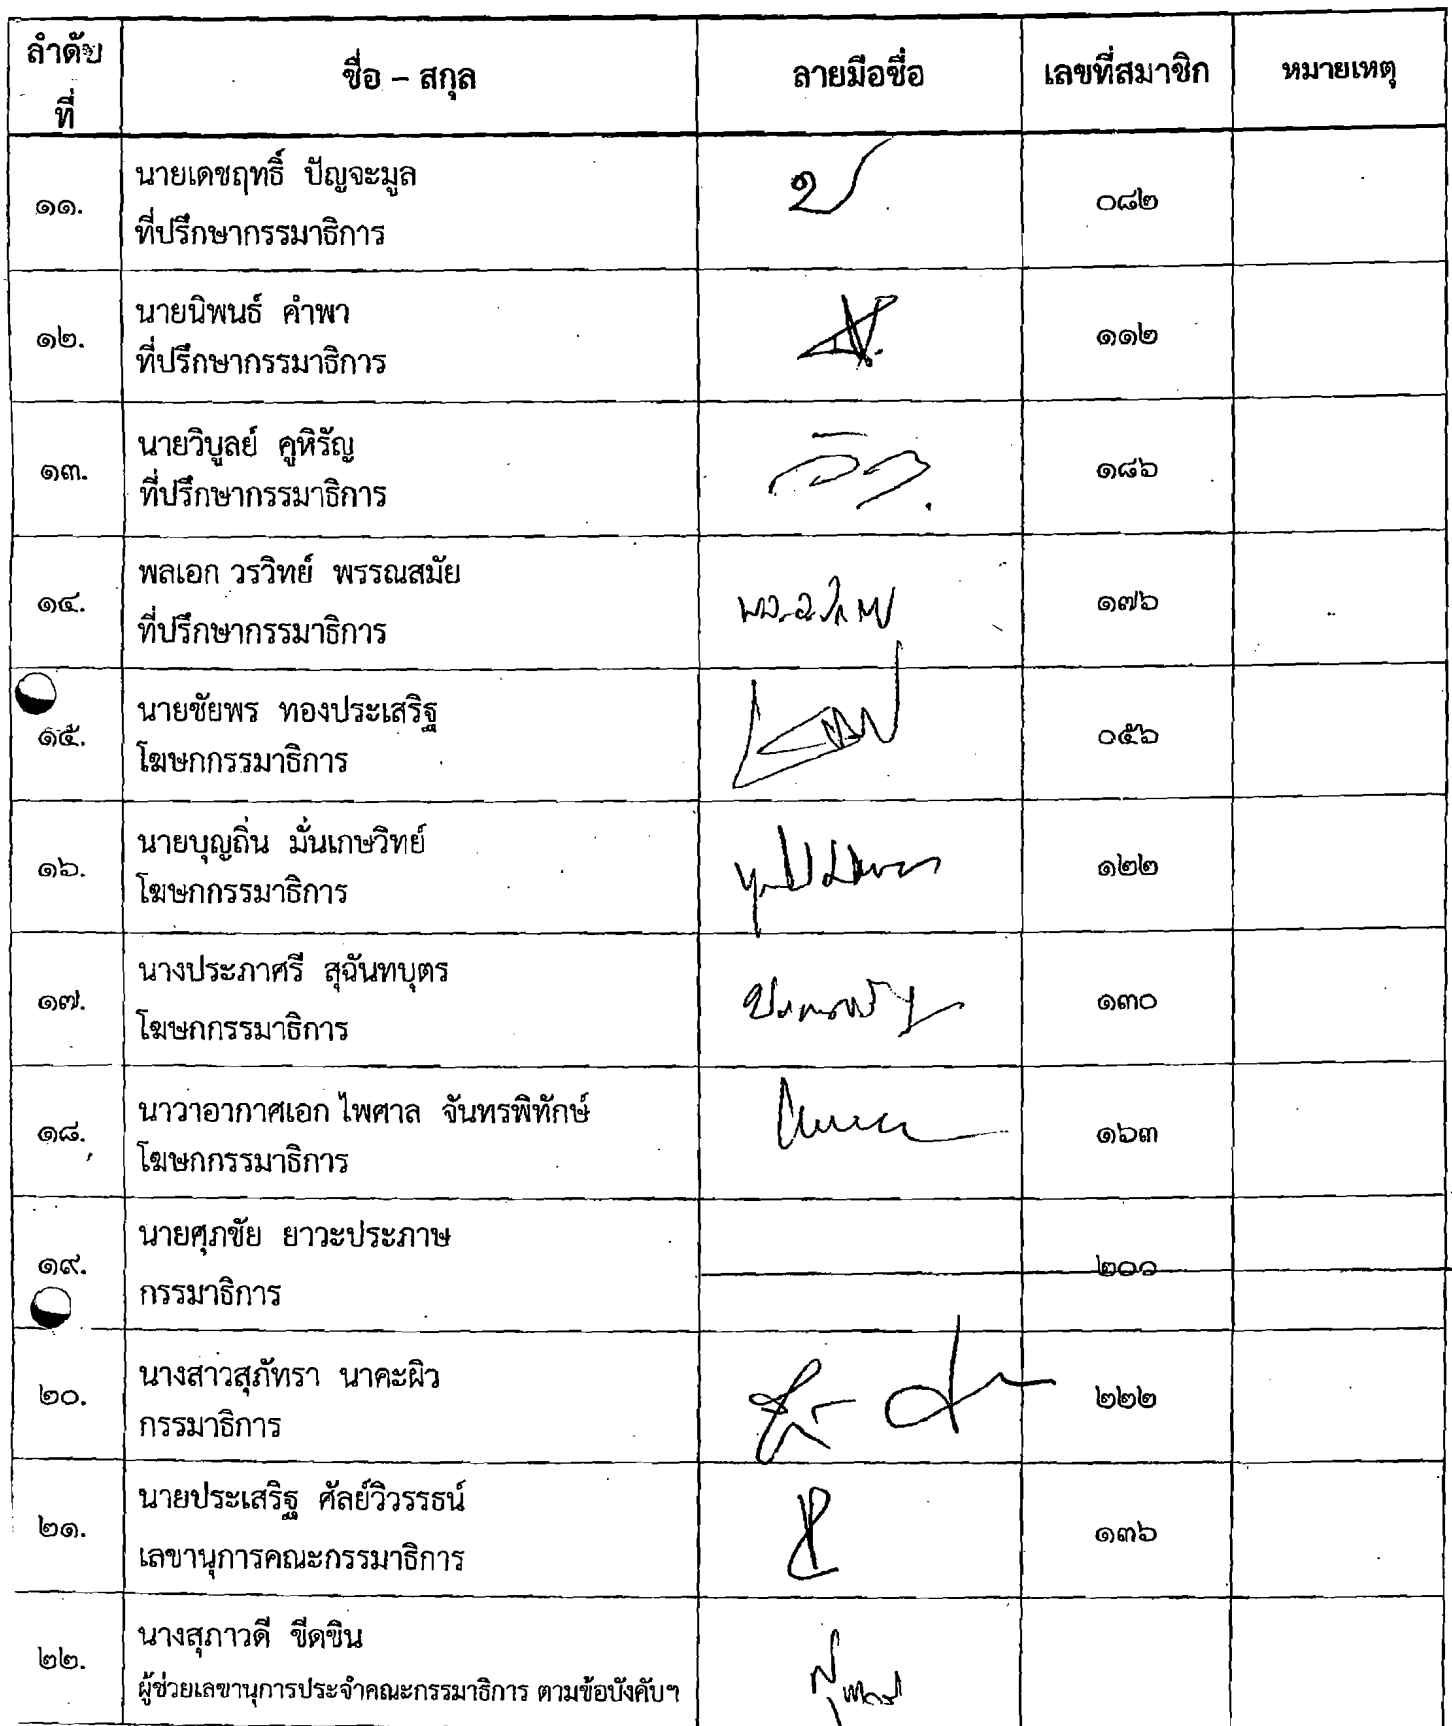 ลำดับ
ที่
ชื่อ – สกุล
ลายมือชื่อ
เลขที่สมาชิก
หมายเหตุ
๑๑.
นายเดชฤทธิ์ ปัญจะมูล
ที่ปรึกษากรรมาธิการ
๐๘๒
๑๒.
นายนิพนธ์ คำพา
ที่ปรึกษากรรมาธิการ
๑๑๒
๑๓.
นายวิบูลย์ คูหิรัญ
ที่ปรึกษากรรมาธิการ
๑๘๖
๑๔.
พลเอก วรวิทย์ พรรณสมัย
ที่ปรึกษากรรมาธิการ
๑๗๖
๑๕.
นายชัยพร ทองประเสริฐ
โฆษกกรรมาธิการ
๐๕๖
๑๖.
นายบุญถิ่น มั่นเกษวิทย์
โฆษกกรรมาธิการ
๑๒๒
๑๗.
นางประภาศรี สุฉันทบุตร
โฆษกกรรมาธิการ
๑๓๐
๑๘.
นาวาอากาศเอก ไพศาล จันทรพิทักษ์
โฆษกกรรมาธิการ
๑๖๓
๑๙.
นายศุภชัย ยาวะประภาษ
กรรมาธิการ
๒๐๑
๒๐.
นางสาวสุภัทรา นาคะผิว
กรรมาธิการ
๒๒๒
๒๑.
นายประเสริฐ ศัลย์วิวรรธน์
เลขานุการคณะกรรมาธิการ
๑๓๖
๒๒.
นางสุภาวดี ขีดขิน
ผู้ช่วยเลขานุการประจำคณะกรรมาธิการ ตามข้อบังคับฯ